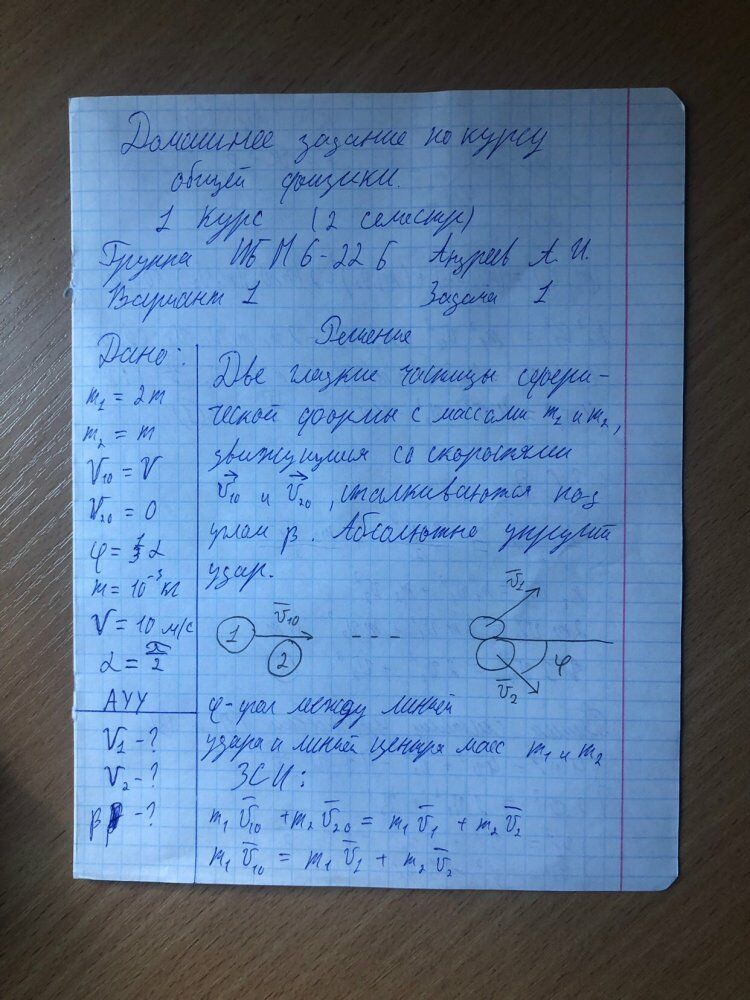 Домашнее задание по курсу
общей физики.
1 Курс (2 семестр)
Группа 6-22 б Андреев А. И.
Вариант 1 Задача 1
Решение
Дано:
m₁ = 2m
m₂ = m
V₁₀ = V
V₂₀ = 0
φ = 1/3 α
m = 10⁻³ кг
V = 10 м/с
α = π/2
АУУ
V₁ - ?
V₂ - ?
β - ?
Две гладкие частицы сфери-
ческой формы с массами m₁ и m₂,
движущиеся со скоростями
v⃗₁₀ и v⃗₂₀, сталкиваются под
углом β. Абсолютно упругий
удар.
1 v̅₁₀ 2 - - - v̅₁ φ v̅₂
φ-угол между линией
удара и линией центра масс m₁ и m₂
ЗСИ:
m₁ v̅₁₀ + m₂ v̅₂₀ = m₁ v̅₁ + m₂ v̅₂
m₁ v̅₁₀ = m₁ v̅₁ + m₂ v̅₂